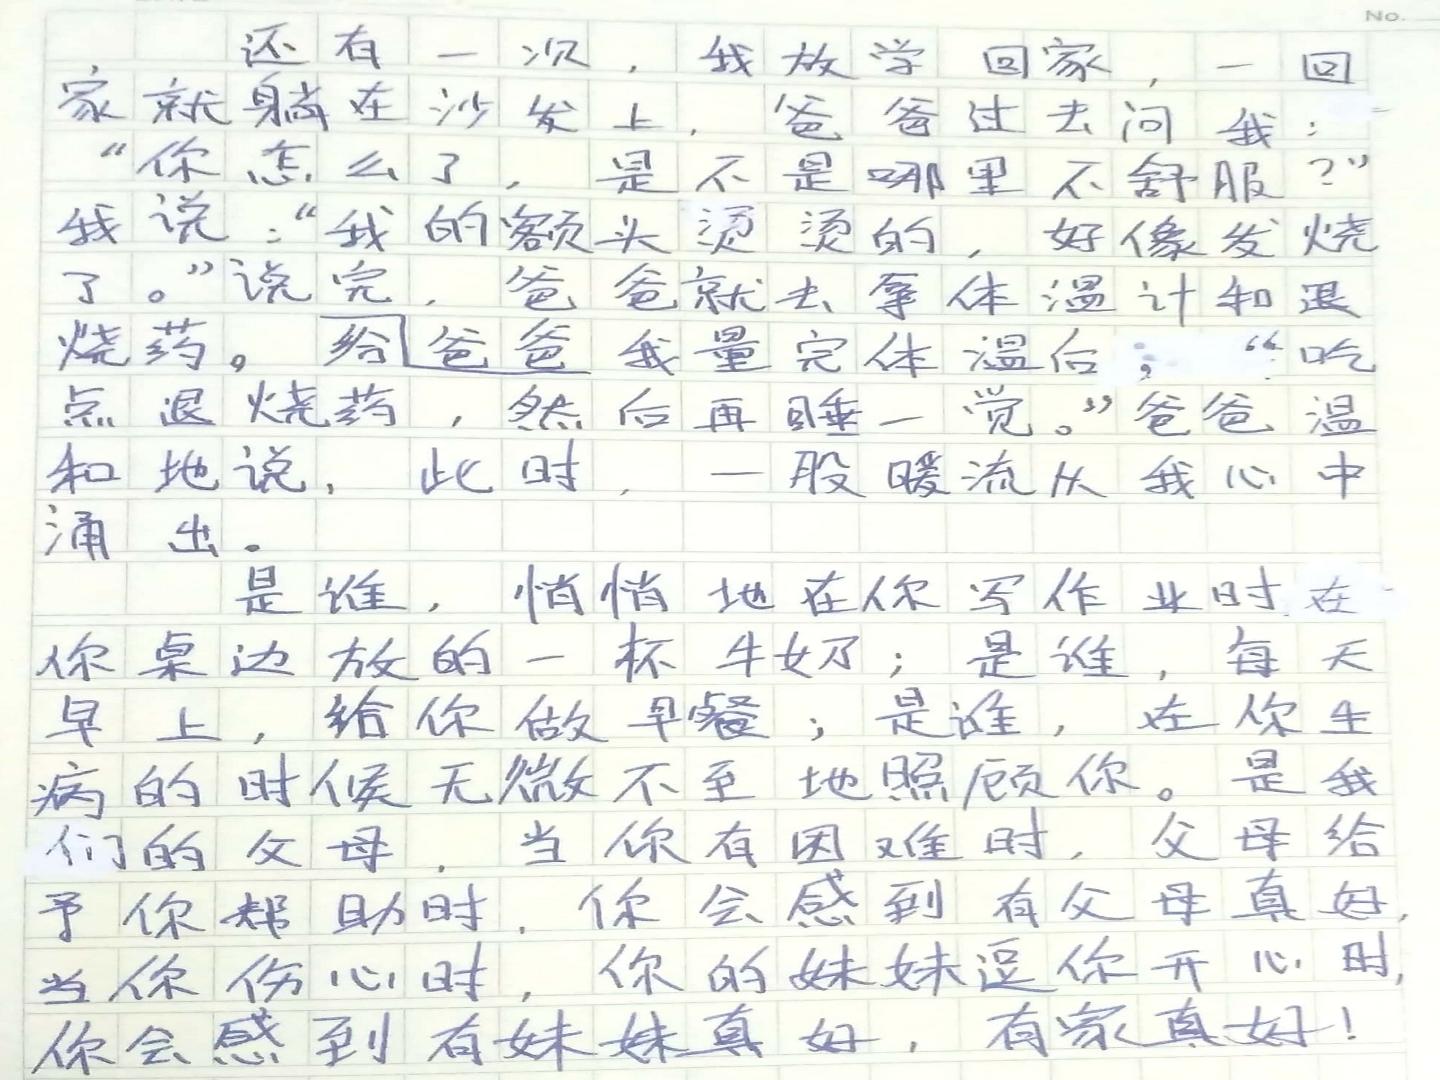 No.
还有一次，我放学回家，一回
家就躺在沙发上，爸爸过去问我：
“你怎么了，是不是哪里不舒服？”
我说：“我的额头烫烫的，好像发烧
了。”说完，爸爸就去拿体温计和退
烧药。给爸爸我量完体温后；“吃
点退烧药，然后再睡一觉。”爸爸温
和地说，此时，一股暖流从我心中
涌出。
是谁，悄悄地在你写作业时在
你桌边放的一杯牛奶；是谁，每天
早上，给你做早餐；是谁，在你生
病的时候无微不至地照顾你。是我
们的父母，当你有困难时，父母给
予你帮助时，你会感到有父母真好，
当你伤心时，你的妹妹逗你开心时，
你会感到有妹妹真好，有家真好！